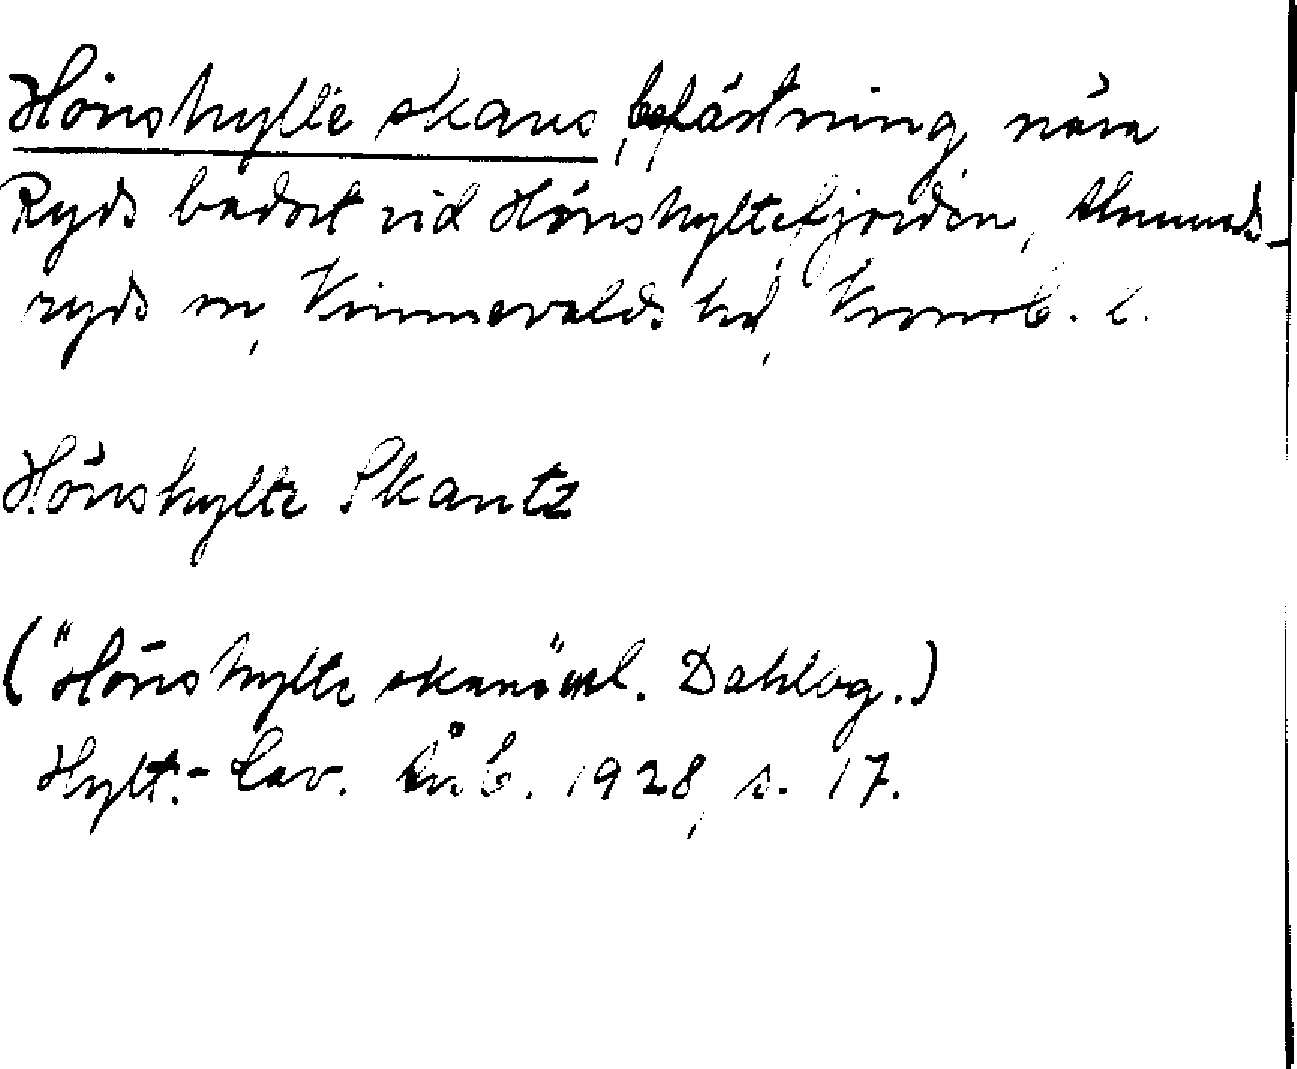 Hönshylte skans, befästning nära
Ryds badort vid Hönshyltefjorden, Almunds-
ryds sn, Kinnevalds hd, Kronob. l.
Hönshylte Skantz
("Hönshylte skans" enl. Dahlbg.)
Hylt.-Cav. Åsb. 1928, s. 17.